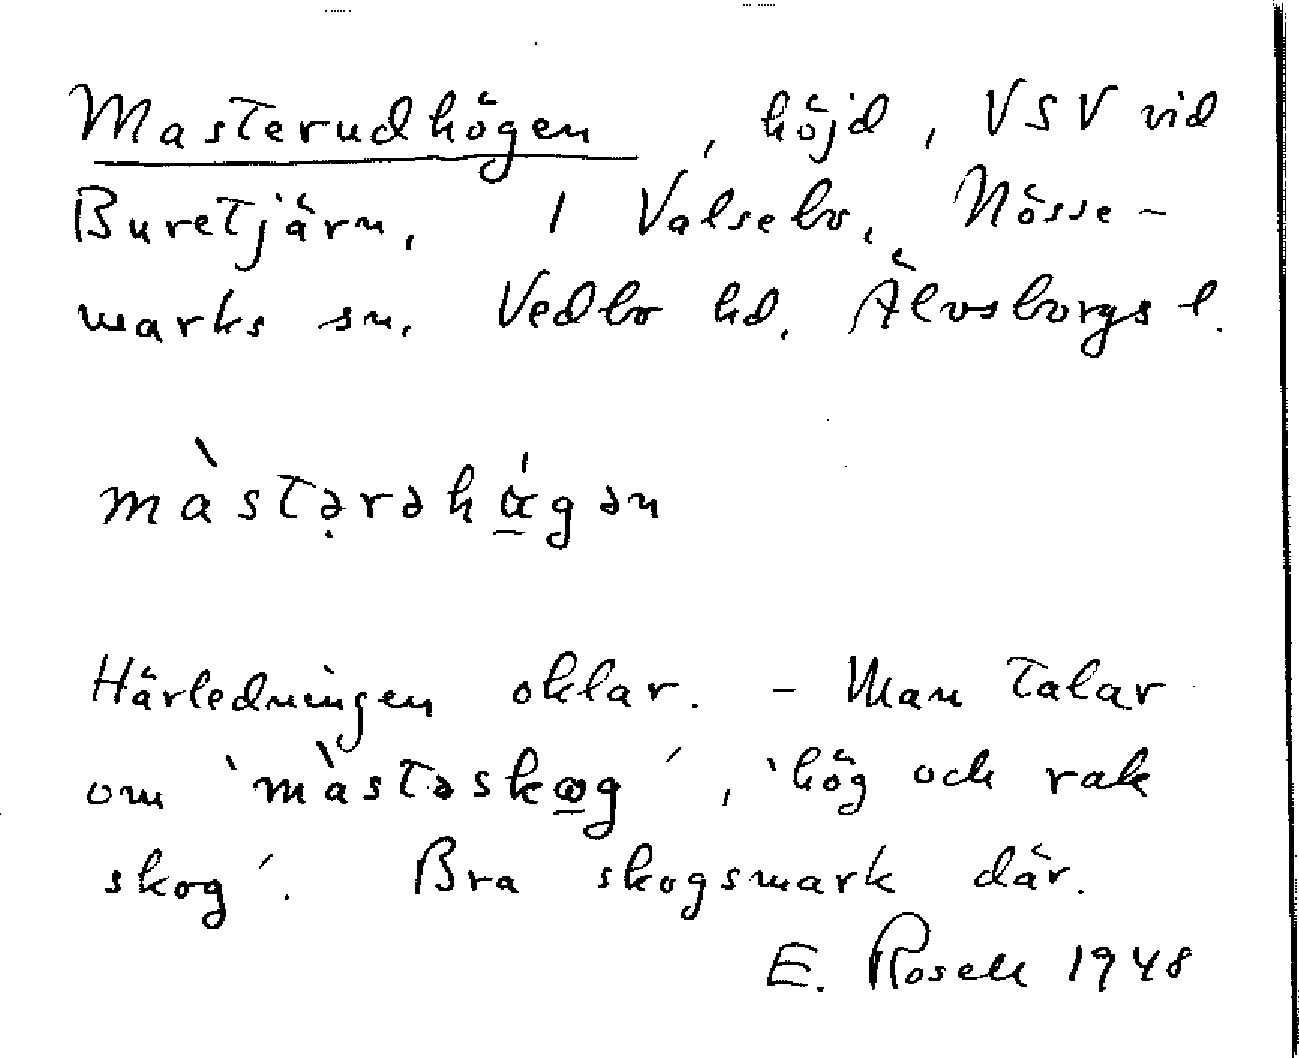 Masterudhögen, höjd, VSV vid
Buretjärn. I Valsebo, Nösse-
marks sn. Vedbo hd. Älvsborgs l.
màstə̣rəhɑ̲́gən
Härledningen oklar. - Man talar
om 'màstəskog', 'hög och rak
skog'. Bra skogsmark där.
E. Rosell 1948